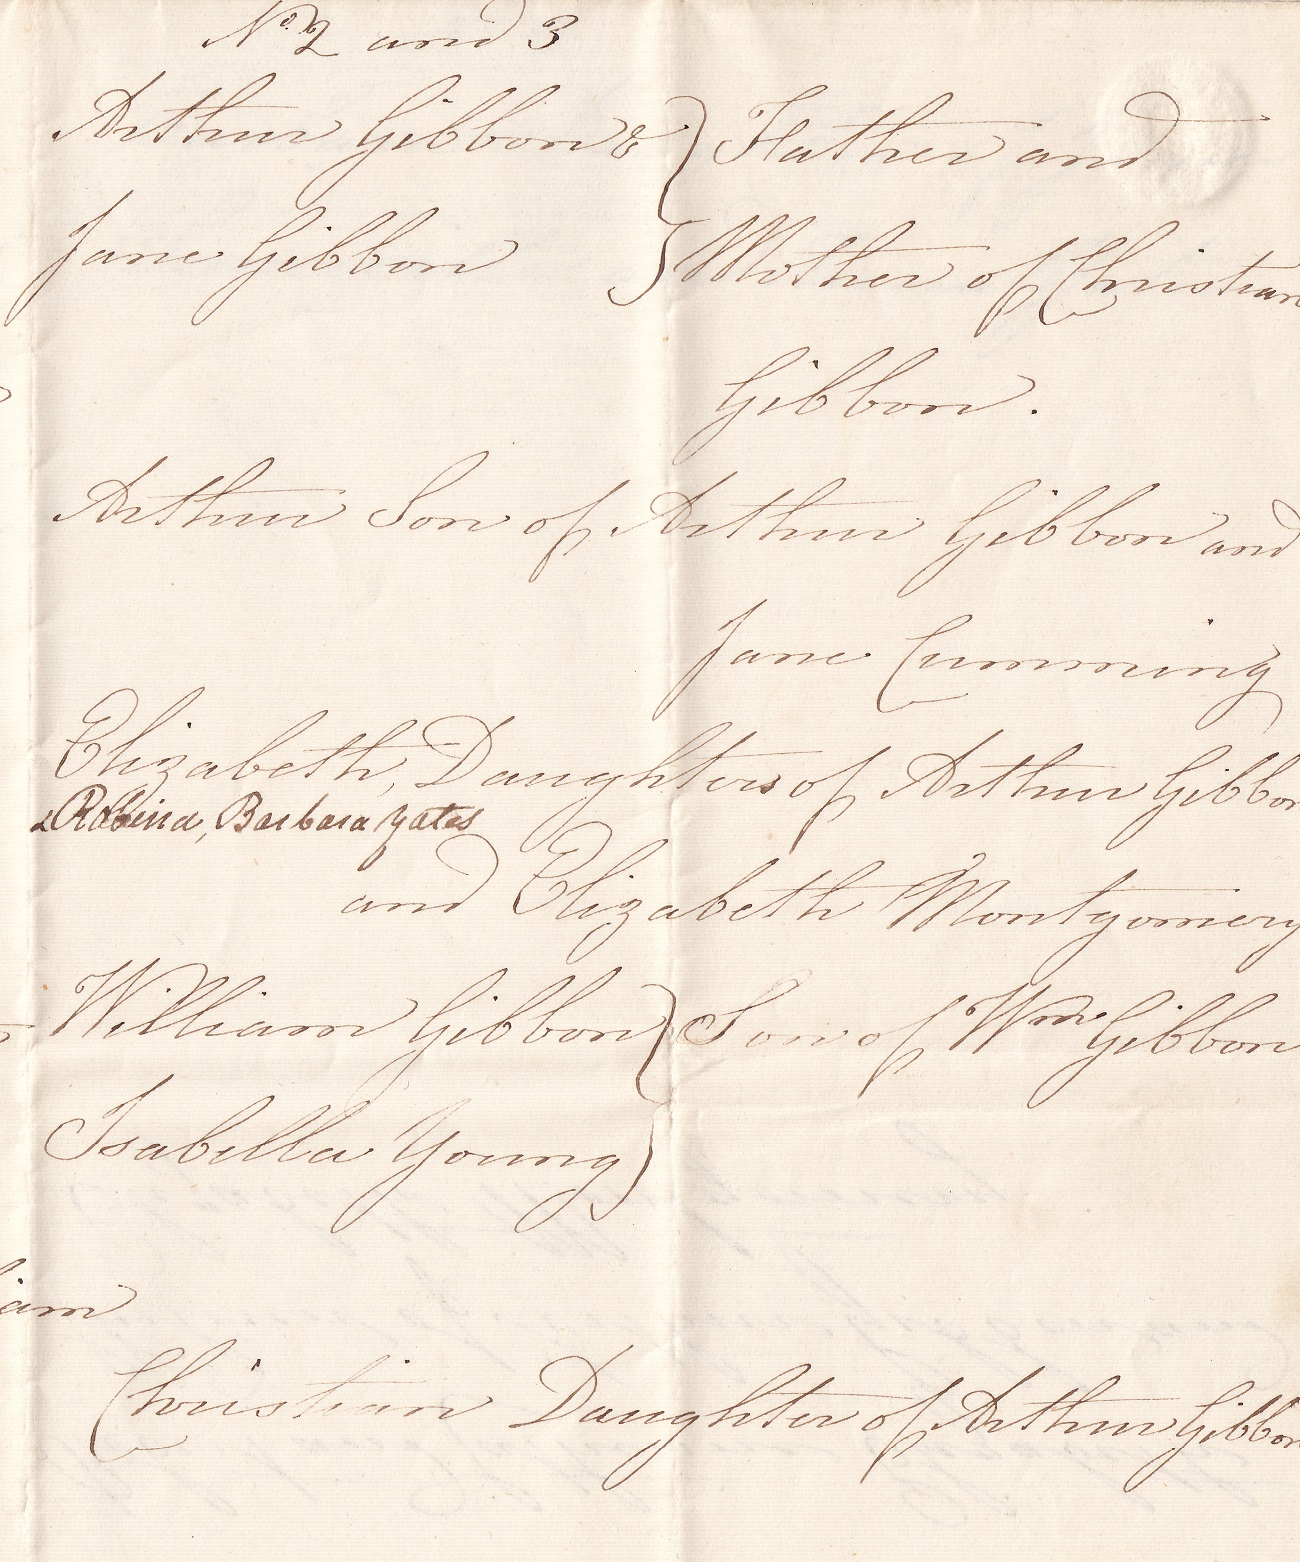 No. 2 and 3
Arthur Gibbon & } Father and
Jane Gibbon } Mother of Christian
Gibbon.
Arthur Son of Arthur Gibbon and
Jane Cumming
Elizabeth, Daughters of Arthur Gibbon
& Robina, Barbara Yates
and Elizabeth Montgomery
William Gibbon } Son of Wm Gibbon
Isabella Young }
iam
Christian Daughter of Arthur Gibbon